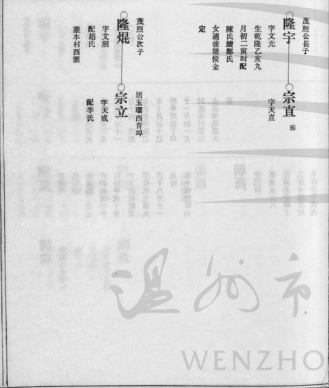 茂煕公長子
隆宇
字文元
生乾隆乙亥九
月初二寅时配
陳氏續鄭氏
女適後壠侯金
定
宗直
字天直
茂煕公次子
隆焜
字文照
配趙氏
墓本村西匯
宗立
居五壠西青垟
字天成
配李氏
温州市
WENZHO